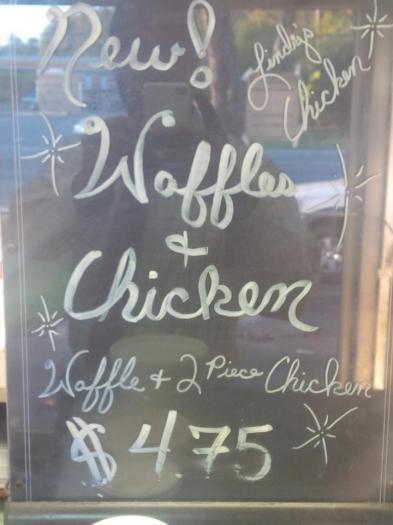 New!
Lindig's
Chicken
Waffles
&
Chicken
Waffle & 2 Piece Chicken
$4.75